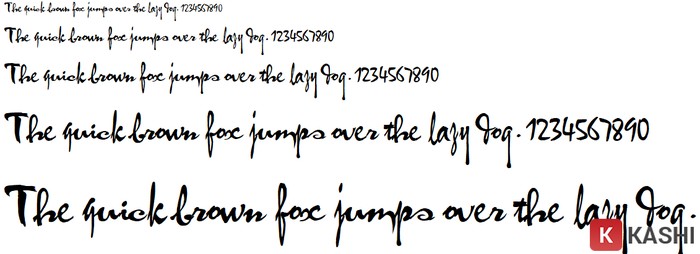 The quick brown fox jumps over the lazy dog. 1234567890
The quick brown fox jumps over the lazy dog. 1234567890
The quick brown fox jumps over the lazy dog. 1234567890
The quick brown fox jumps over the lazy dog. 1234567890
The quick brown fox jumps over the lazy dog.
K KASHI